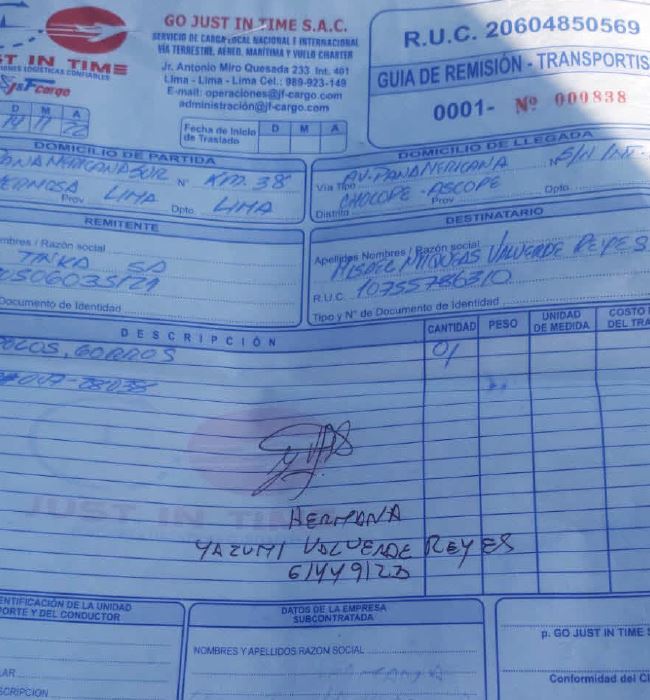 GO JUST IN TIME S.A.C.
SERVICIO DE CARGA LOCAL NACIONAL E INTERNACIONAL
VÍA TERRESTRE, AÉREO, MARÍTIMA Y VUELO CHARTER
Jr. Antonio Miro Quesada 233 Int. 401
Lima - Lima - Lima Cel.: 989-923-149
E-mail: operaciones@jf-cargo.com
administración@jf-cargo.com
ST IN TIME
IONES LOGÍSTICAS CONFIABLES
JsF cargo
R.U.C. 20604850569
GUIA DE REMISIÓN - TRANSPORTIS
0001- Nº 000838
D M A
14 11 22
Fecha de Inicio de Traslado D M A
DOMICILIO DE PARTIDA
PANAMERICANA SUR Nº KM. 38
HERMOSA Prov. LIMA Dpto. LIMA
DOMICILIO DE LLEGADA
Vía Tipo AV. PANAMERICANA Nº S/N INT.
Distrito CHOCOPE - ASCOPE Prov. Dpto.
REMITENTE
mbres / Razón social
TINKA SA
0506035121
Documento de Identidad
DESTINATARIO
Apellidos Nombres / Razón social
MISAEL MIQUEAS VALVERDE REYES
R.U.C. 10755786310
Tipo y N° de Documento de Identidad
DESCRIPCIÓN CANTIDAD PESO UNIDAD DE MEDIDA COSTO DEL TRA
POLOS, GORROS 01
JUST IN TIME
HERMANA
YAZUMI VALVERDE REYES
61449123
ENTIFICACIÓN DE LA UNIDAD
PORTE Y DEL CONDUCTOR
DATOS DE LA EMPRESA
SUBCONTRATADA
NOMBRES Y APELLIDOS RAZON SOCIAL
p. GO JUST IN TIME S
Conformidad del Cl
LAR
SCRIPCION